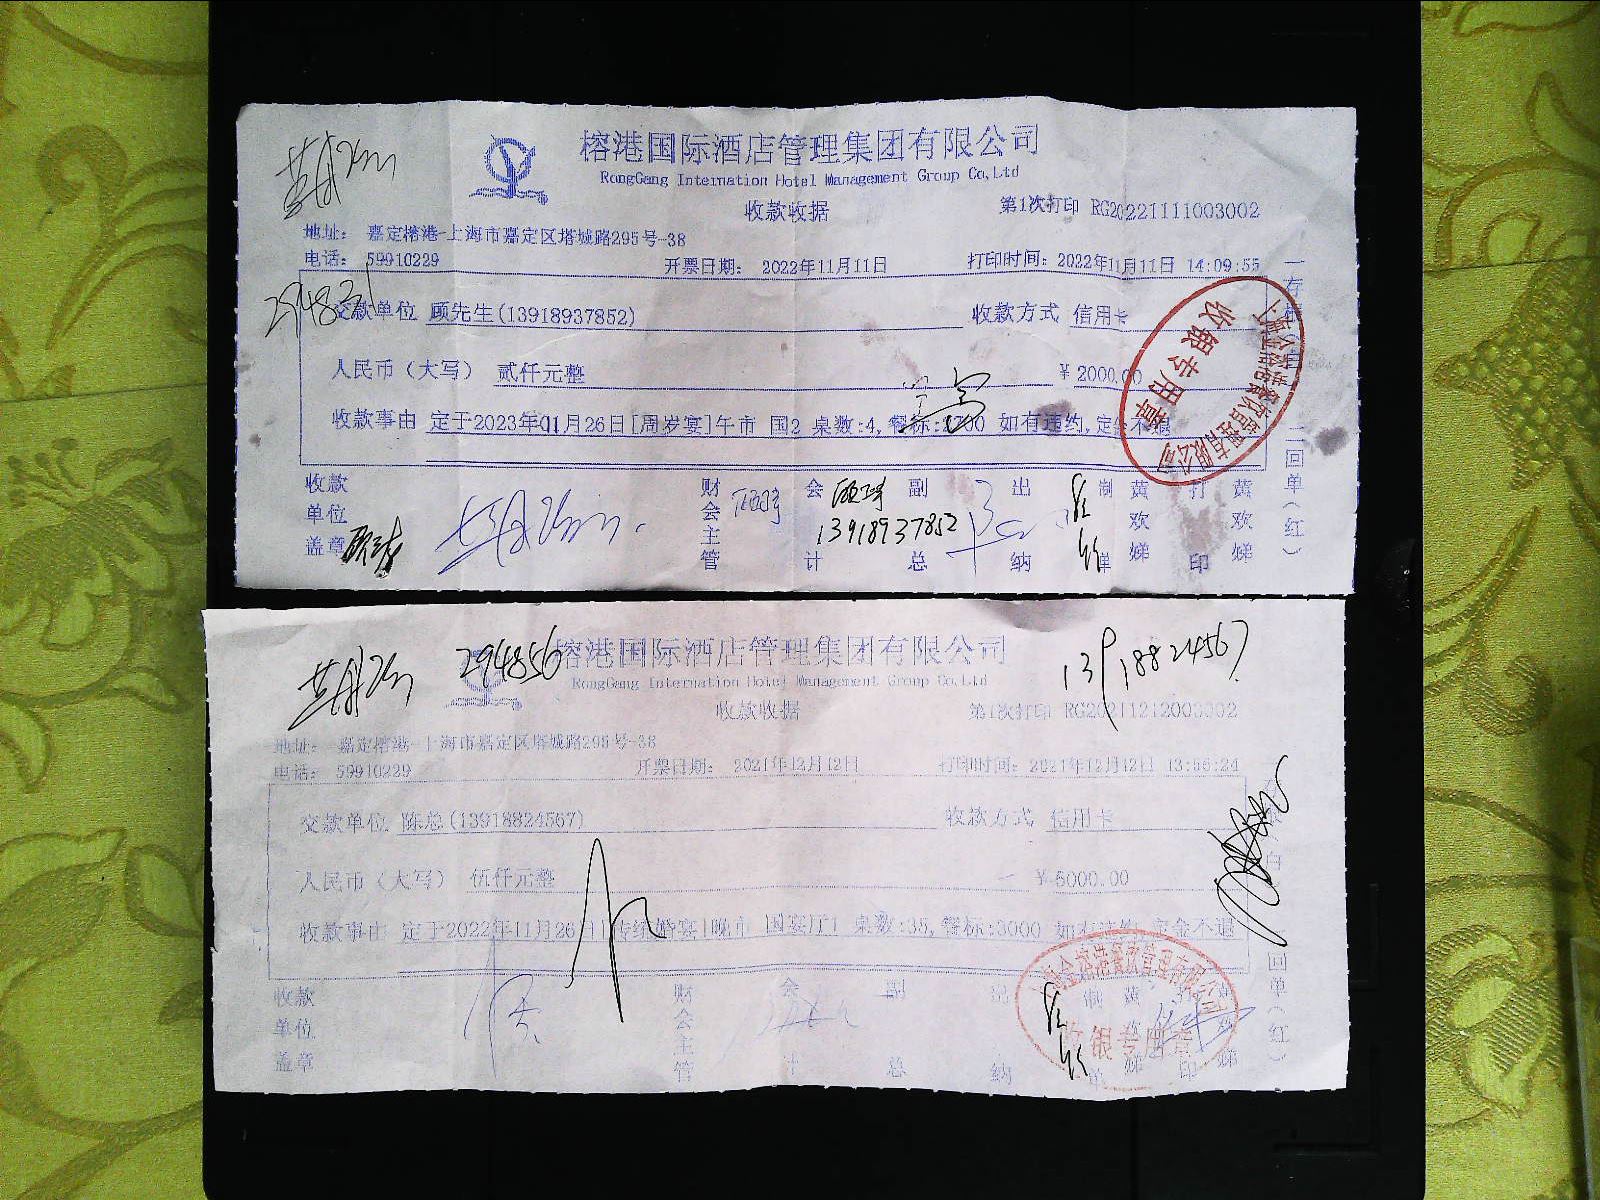 榕港国际酒店管理集团有限公司
RongGang Internation Hotel Management Group Co,Ltd
收款收据
第1次打印 RG20221111003002
地址: 嘉定榕港-上海市嘉定区塔城路295号-38
电话: 59910229 开票日期: 2022年11月11日 打印时间: 2022年11月11日 14:09:55
交款单位 顾先生(13918937852) 收款方式 信用卡
人民币(大写) 贰仟元整 ¥ 2000.00
收款事由 定于2023年01月26日[周岁宴]午市 国2 桌数:4, 餐标:2700 如有违约,定金不退
收款单位盖章 财会主管 会计 副总 出纳 制单 黄欢娣 打印 黄欢娣
13918937852
二回单(红)
收银专用章
294856
13918824567
榕港国际酒店管理集团有限公司
RongGang Internation Hotel Management Group Co,Ltd
收款收据
第1次打印 RG20211212003002
地址: 嘉定榕港-上海市嘉定区塔城路295号-38
电话: 59910229 开票日期: 2021年12月12日 打印时间: 2021年12月12日 13:56:24
交款单位 陈总(13918824567) 收款方式 信用卡
人民币(大写) 伍仟元整 ¥ 5000.00
收款事由 定于2022年11月26日[传统婚宴]晚市 国宴厅1 桌数:35, 餐标:3000 如有违约,定金不退
收款单位盖章 财会主管 会计 副总 出纳 制单 黄欢娣 打印
回单(红)
收银专用章